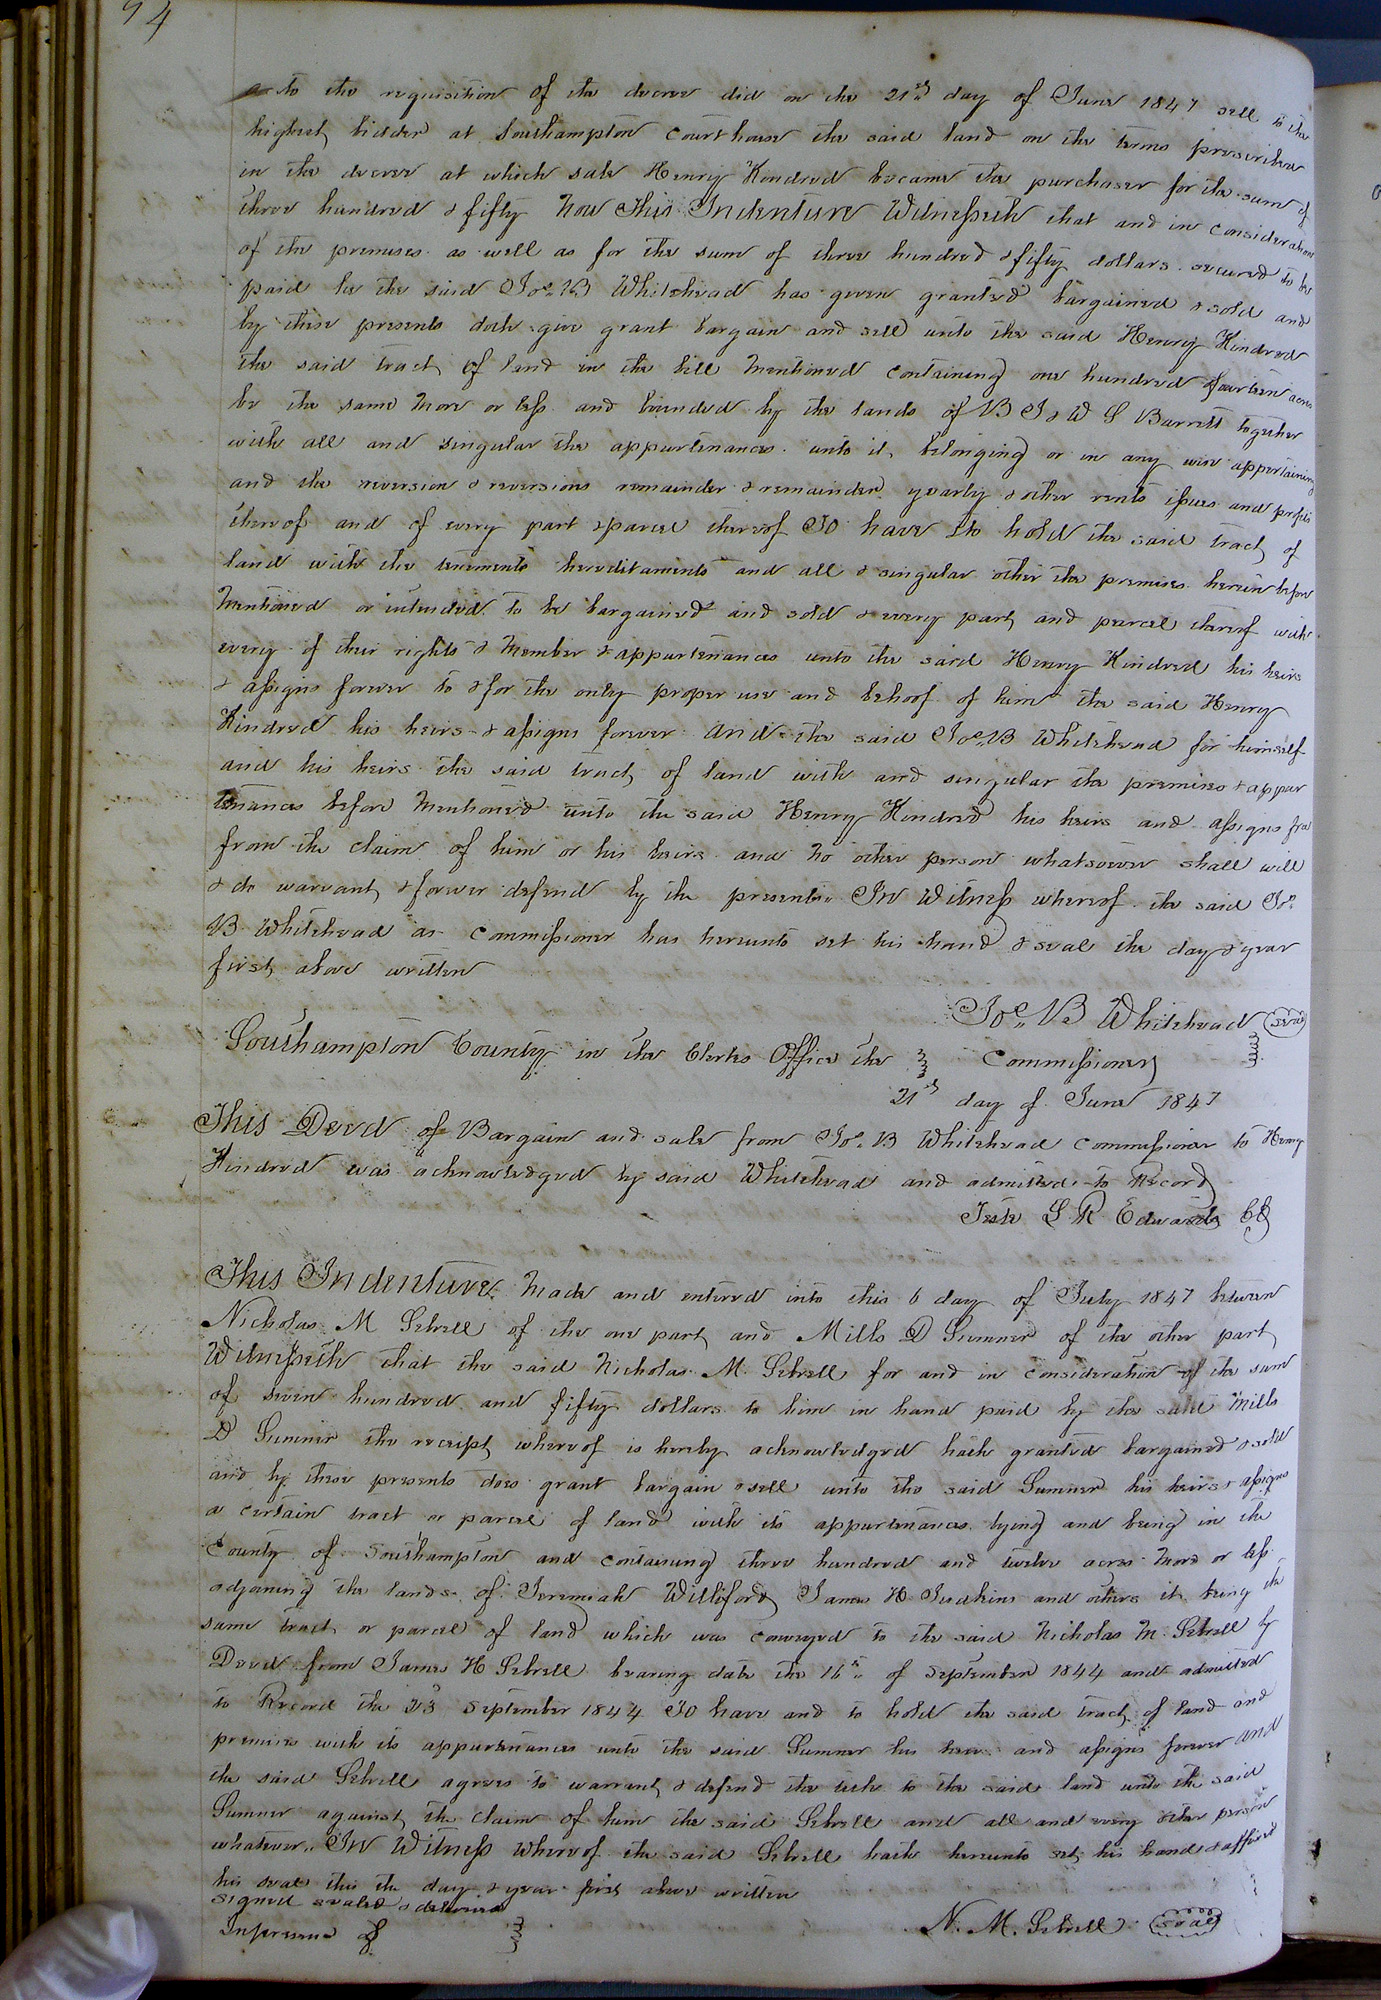 94
to the requisition of the decree did on the 21st day of June 1847 sell to the
highest bidder at Southampton Courthouse the said land on the terms prescribed
in the decree at which sale Henry Kindred became the purchaser for the sum of
three hundred & fifty Now This Indenture Witnesseth that and in consideration
of the premises as well as for the sum of three hundred & fifty dollars secured to be
paid he the said Jos. B Whitehead has given granted bargained & sold and
by these presents doth give grant bargain and sell unto the said Henry Kindred
the said tract of land in the bill mentioned containing one hundred & fourteen acres
be the same more or less and bounded by the lands of B J & W S Barrett together
with all and singular the appurtenances unto it belonging or in any wise appertaining
and the reversion & reversions remainder & remainder yearly & other rents issues and profits
thereof and of every part & parcel thereof To have & to hold the said tract of
land with the tenements hereditaments and all & singular other the premises herein before
Mentioned or intended to be bargained and sold & every part and parcel thereof with
every of their rights & Member & appurtenances unto the said Henry Kindred his heirs
& assigns forever to & for the only proper use and behoof of him the said Henry
Kindred his heirs & assigns forever and the said Jos. B Whitehead for himself
and his heirs the said tract of land with and singular the premises & appur
tenances before Mentioned unto the said Henry Kindred his heirs and assigns free
from the claim of him or his heirs and no other person whatsoever shall will
& do warrant & forever defend by the presents In Witness whereof the said Jos.
B Whitehead as Commissioner has hereunto set his hand & seal the day & year
first above written
Jos. B Whitehead (seal)
Southampton County in the Clerks Office the Commissioner
21st day of June 1847
This Deed of Bargain and sale from Jos. B Whitehead Commissioner to Henry
Kindred was acknowledged by said Whitehead and admitted to Record
Teste L R Edwards CC
This Indenture Made and entered into this 6 day of July 1847 between
Nicholas M Sebrell of the one part and Mills D Sumner of the other part
Witnesseth that the said Nicholas M. Sebrell for and in consideration of the sum
of seven hundred and fifty dollars to him in hand paid by the said Mills
D Sumner the receipt whereof is hereby acknowledged hath granted bargained & sold
and by these presents does grant bargain & sell unto the said Sumner his heirs & assigns
a certain tract or parcel of land with its appurtenances lying and being in the
County of Southampton and containing three hundred and twelve acres more or less
adjoining the lands of Jeremiah Williford James H Judkins and others it being the
same tract or parcel of land which was conveyed to the said Nicholas M. Sebrell by
Deed from James H Sebrell bearing date the 16th of September 1844 and admitted
to Record the 23 September 1844 To have and to hold the said tract of land and
premises with its appurtenances unto the said Sumner his heirs and assigns forever and
the said Sebrell agrees to warrant & defend the title to the said land unto the said
Sumner against the claim of him the said Sebrell and all and every other person
whatever In Witness whereof the said Sebrell hath hereunto set his hand & affixed
his seal this the day & year first above written
signed sealed & delivered
In presence of N. M. Sebrell (seal)